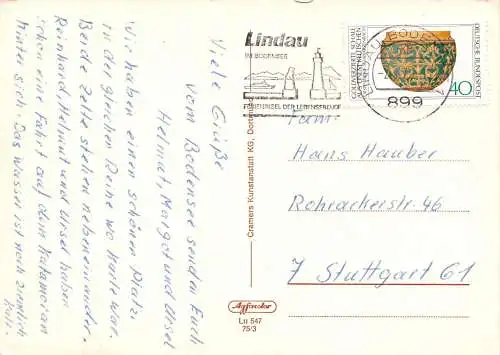 Viele Grüße
vom Bodensee senden Euch
Helmut, Margot und Ursel
Wir haben einen schönen Platz
in der gleichen Reihe wo
Beide Zelte stehen nebeneinander.
Reinhard, Helmut und Ursel haben
schon eine Fahrt auf dem Katamaran
hinter sich. Das Wasser ist noch ziemlich
kalt.
Lindau
IM BODENSEE
899
DEUTSCHE BUNDESPOST
40
Fam.
Hans Hauber
Rohrackerstr. 46
7 Stuttgart 61
Cramers Kunstanstalt KG, Dortmund
Agfacolor
Lu 547
75/3